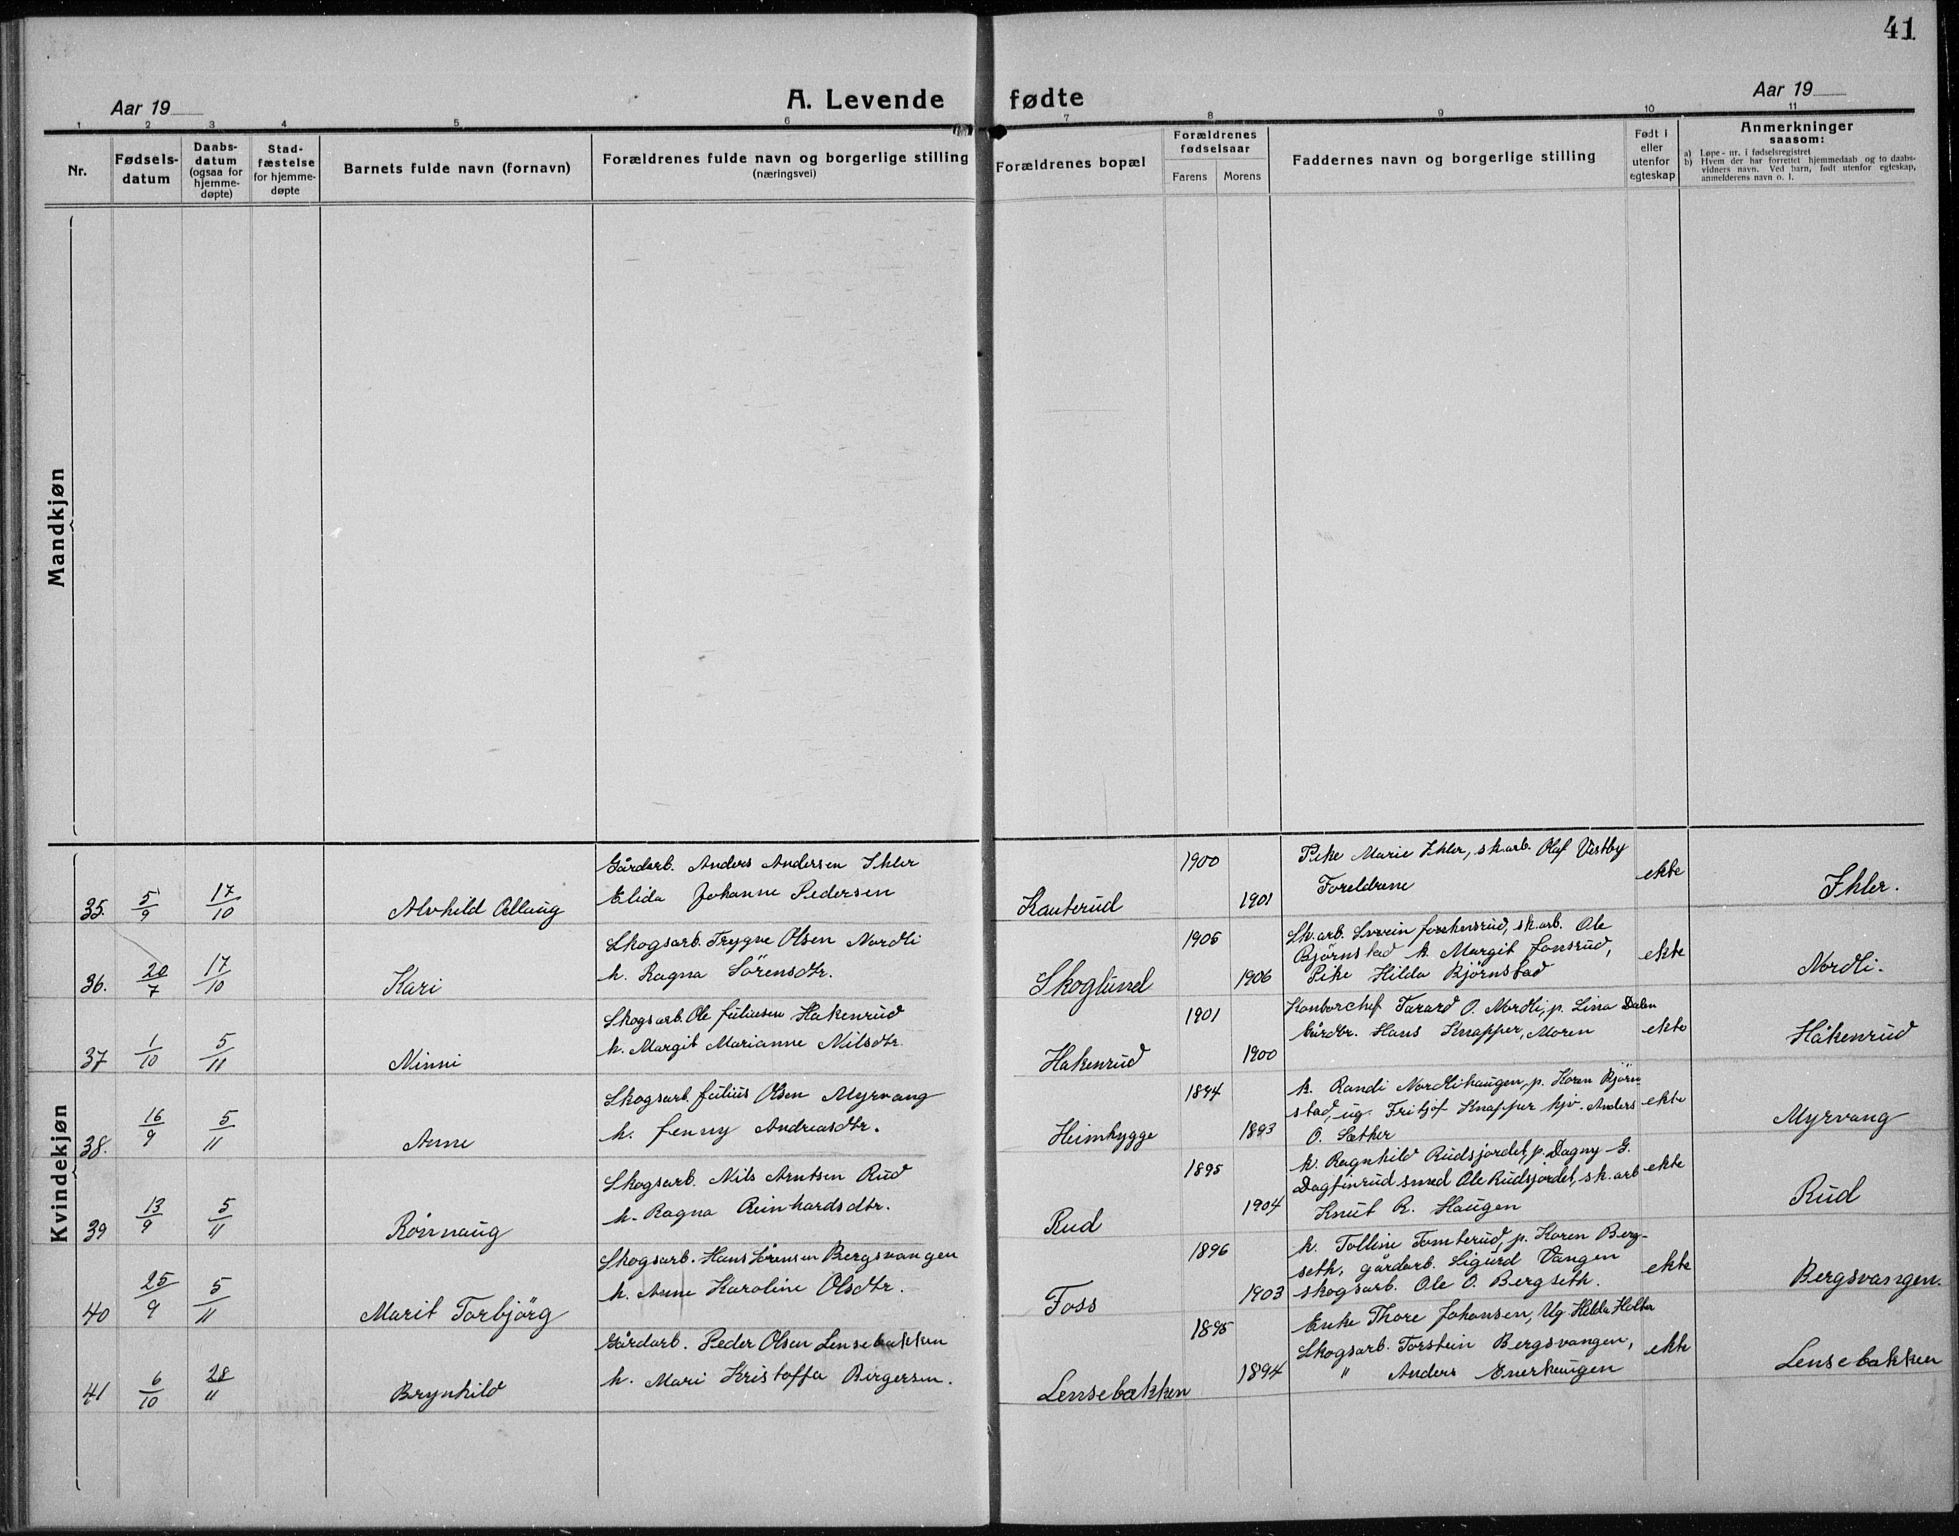 41
Aar 19
A. Levende fødte
Aar 19
1 2 3 4 5 6 7 8 9 10 11
Nr.
Fødselsdatum
Daabsdatum (ogsaa for hjemmedøpte)
Stadfæstelse for hjemmedøpte
Barnets fulde navn (fornavn)
Forældrenes fulde navn og borgerlige stilling
(næringsvei)
Forældrenes bopæl
Forældrenes fødselsaar
Farens Morens
Faddernes navn og borgerlige stilling
Født i eller utenfor egteskap
Anmerkninger
saasom:
a) Løpe-nr. i fødselsregistret
b) Hvem der har forrettet hjemmedaab og to daabsvidners navn. Ved barn, født utenfor egteskap, anmelderens navn o. l.
Mandkjøn
Kvindekjøn
35. 5/9 17/10 Alvhild Ollaug
Gårdarb. Anders Andersen Ihler
Elida Johanne Pedersen
Kauterud 1900 1901
Pike Marie Ihler, sk.arb. Olaf Vestby
Foreldrene
ekte Ihler.
36. 20/7 17/10 Kari
Skogsarb. Trygve Olsen Nordli
h. Ragna Sörensdtr.
Skoglund 1905 1906
Sk.arb. Svein sk.arb. Ole
Bjørnstad k. Margit Jonsrud,
Pike Hilda Bjørnstad
ekte Nordli.
37 1/10 5/11 Minni
Skogsarb. Ole Juliusen Hakenrud
h. Margit Marianne Nilsdtr.
Hakenrud 1901 1900
Kontorchef O. Nordli, p. Lina Dalen
Gårdbr. Hans Knapper, Moren
ekte Håkenrud
38. 16/9 5/11 Anne
Skogsarb. Julius Olsen Myrvang
h. Jenny Andreasdtr.
Heimhygge 1894 1893
k. Randi Nordlihaugen, p. Karen Bjørn
stad, ug. Fritjof Knapper hjv. Anders
O. Sæther
ekte Myrvang
39 13/9 5/11 Rønnaug
Skogsarb. Nils Arntsen Rud
h. Ragna Reinhardsdtr.
Rud 1895 1904
k. Ragnhild Rudsjordet, p. Dagny G.
Dagfinrud smed Ole Rudsjordet, sk.arb
Knut R. Haugen
ekte Rud
40 25/9 5/11 Marit Torbjörg
Skogsarb. Hans Sörensen Bergsvangen
h. Anne Karoline Olsdtr.
Foss 1896 1903
k. Tolline Tomterud, p. Karen Berg-
seth, gårdarb. Sigurd Vangen
skogsarb. Ole O. Bergseth.
ekte Bergsvangen.
41 6/10 28/11 Brynhild
Gårdarb. Peder Olsen Lensebakken
h. Mari Kristoffa Birgersen.
Lensebakken 1895 1894
Enke Thore Johansen, Ug Hilda Holter
Skogsarb. Torstein Bergsvangen,
" Anders Enerhaugen
ekte Lensebakken